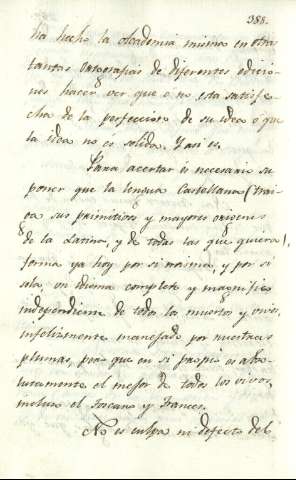 388.
ha hecho la Academia misma en otra
tantas Ortografias de diferentes edicio-
nes hacen ver que o no está satisfe
cha de la perfeccion de su idea o que
la idea no es solida. Y asi es.
Para acertar es necesario su
poner que la lengua Castellana (trai-
ga sus primitivos y mayores origenes
de la Latina, y de todas las que quiera)
forma ya hoy por si misma, y por si
sola, un idioma completo y magnifico
independiente de todos los muertos y vivos,
infelizmente manejado por nuestras
plumas, pero que en si propio es abso-
lutamente el mejor de todos los vivos,
incluso el Toscano y Frances.
No es culpa ni defecto del